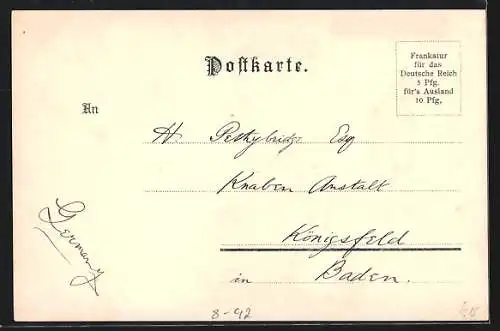 Postkarte.
Frankatur
für das
Deutsche Reich
5 Pfg.
für's Ausland
10 Pfg.
An
H Peskybridge Esq
Knaben Anstalt
Königsfeld
in Baden.
Germany
8-92